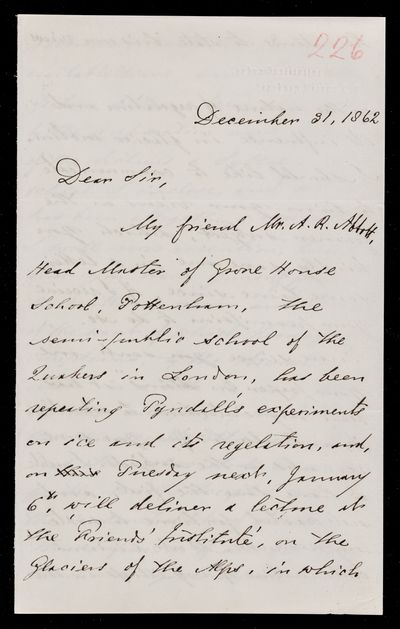 226
December 31, 1862
Dear Sir,
My friend Mr. A. R. Abbott,
Head Master of Grove House
School, Tottenham, the
semi-public school of the
Quakers in London, has been
repeating Tyndall's experiments
on ice and its regelation, and,
on Tuesday next, January
6th, will deliver a lecture at
the 'Friends' Institute', on the
Glaciers of the Alps, in which